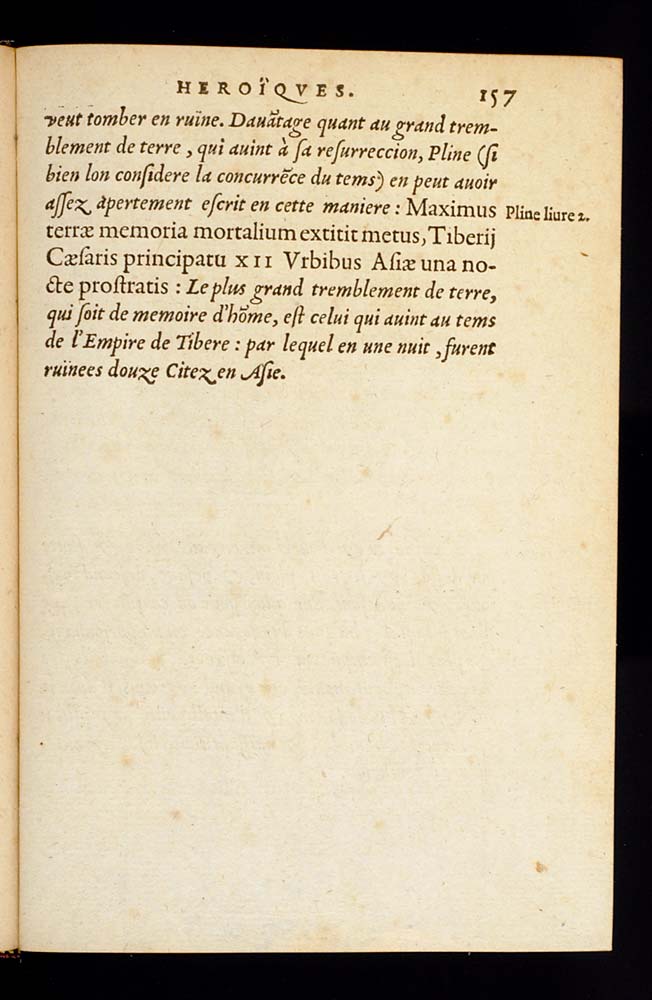 HEROÏQVES. 157
veut tomber en ruïne. Dauãtage quant au grand trem-
blement de terre, qui auint à ſa reſurreccion, Pline (ſi
bien lon conſidere la concurrẽce du tems) en peut auoir
aſſez àpertement eſcrit en cette maniere : Maximus Pline liure 2.
terræ memoria mortalium extitit metus, Tiberij
Cæſaris principatu XII Vrbibus Aſiæ una no-
cte proſtratis : Le plus grand tremblement de terre,
qui ſoit de memoire d'hõme, eſt celui qui auint au tems
de l'Empire de Tibere : par lequel en une nuit, furent
ruïnees douze Citez en Aſie.